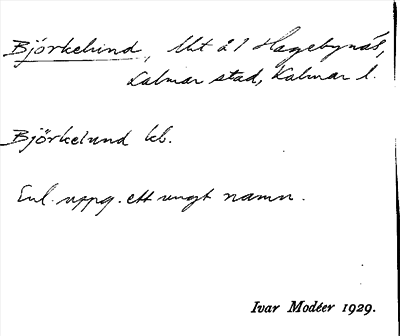 Björkelund, lht å 1 Hagebynäs,
Kalmar stad, Kalmar l.
Björkelund kb.
Enl. uppg. ett ungt namn.
Ivar Modéer 1929.